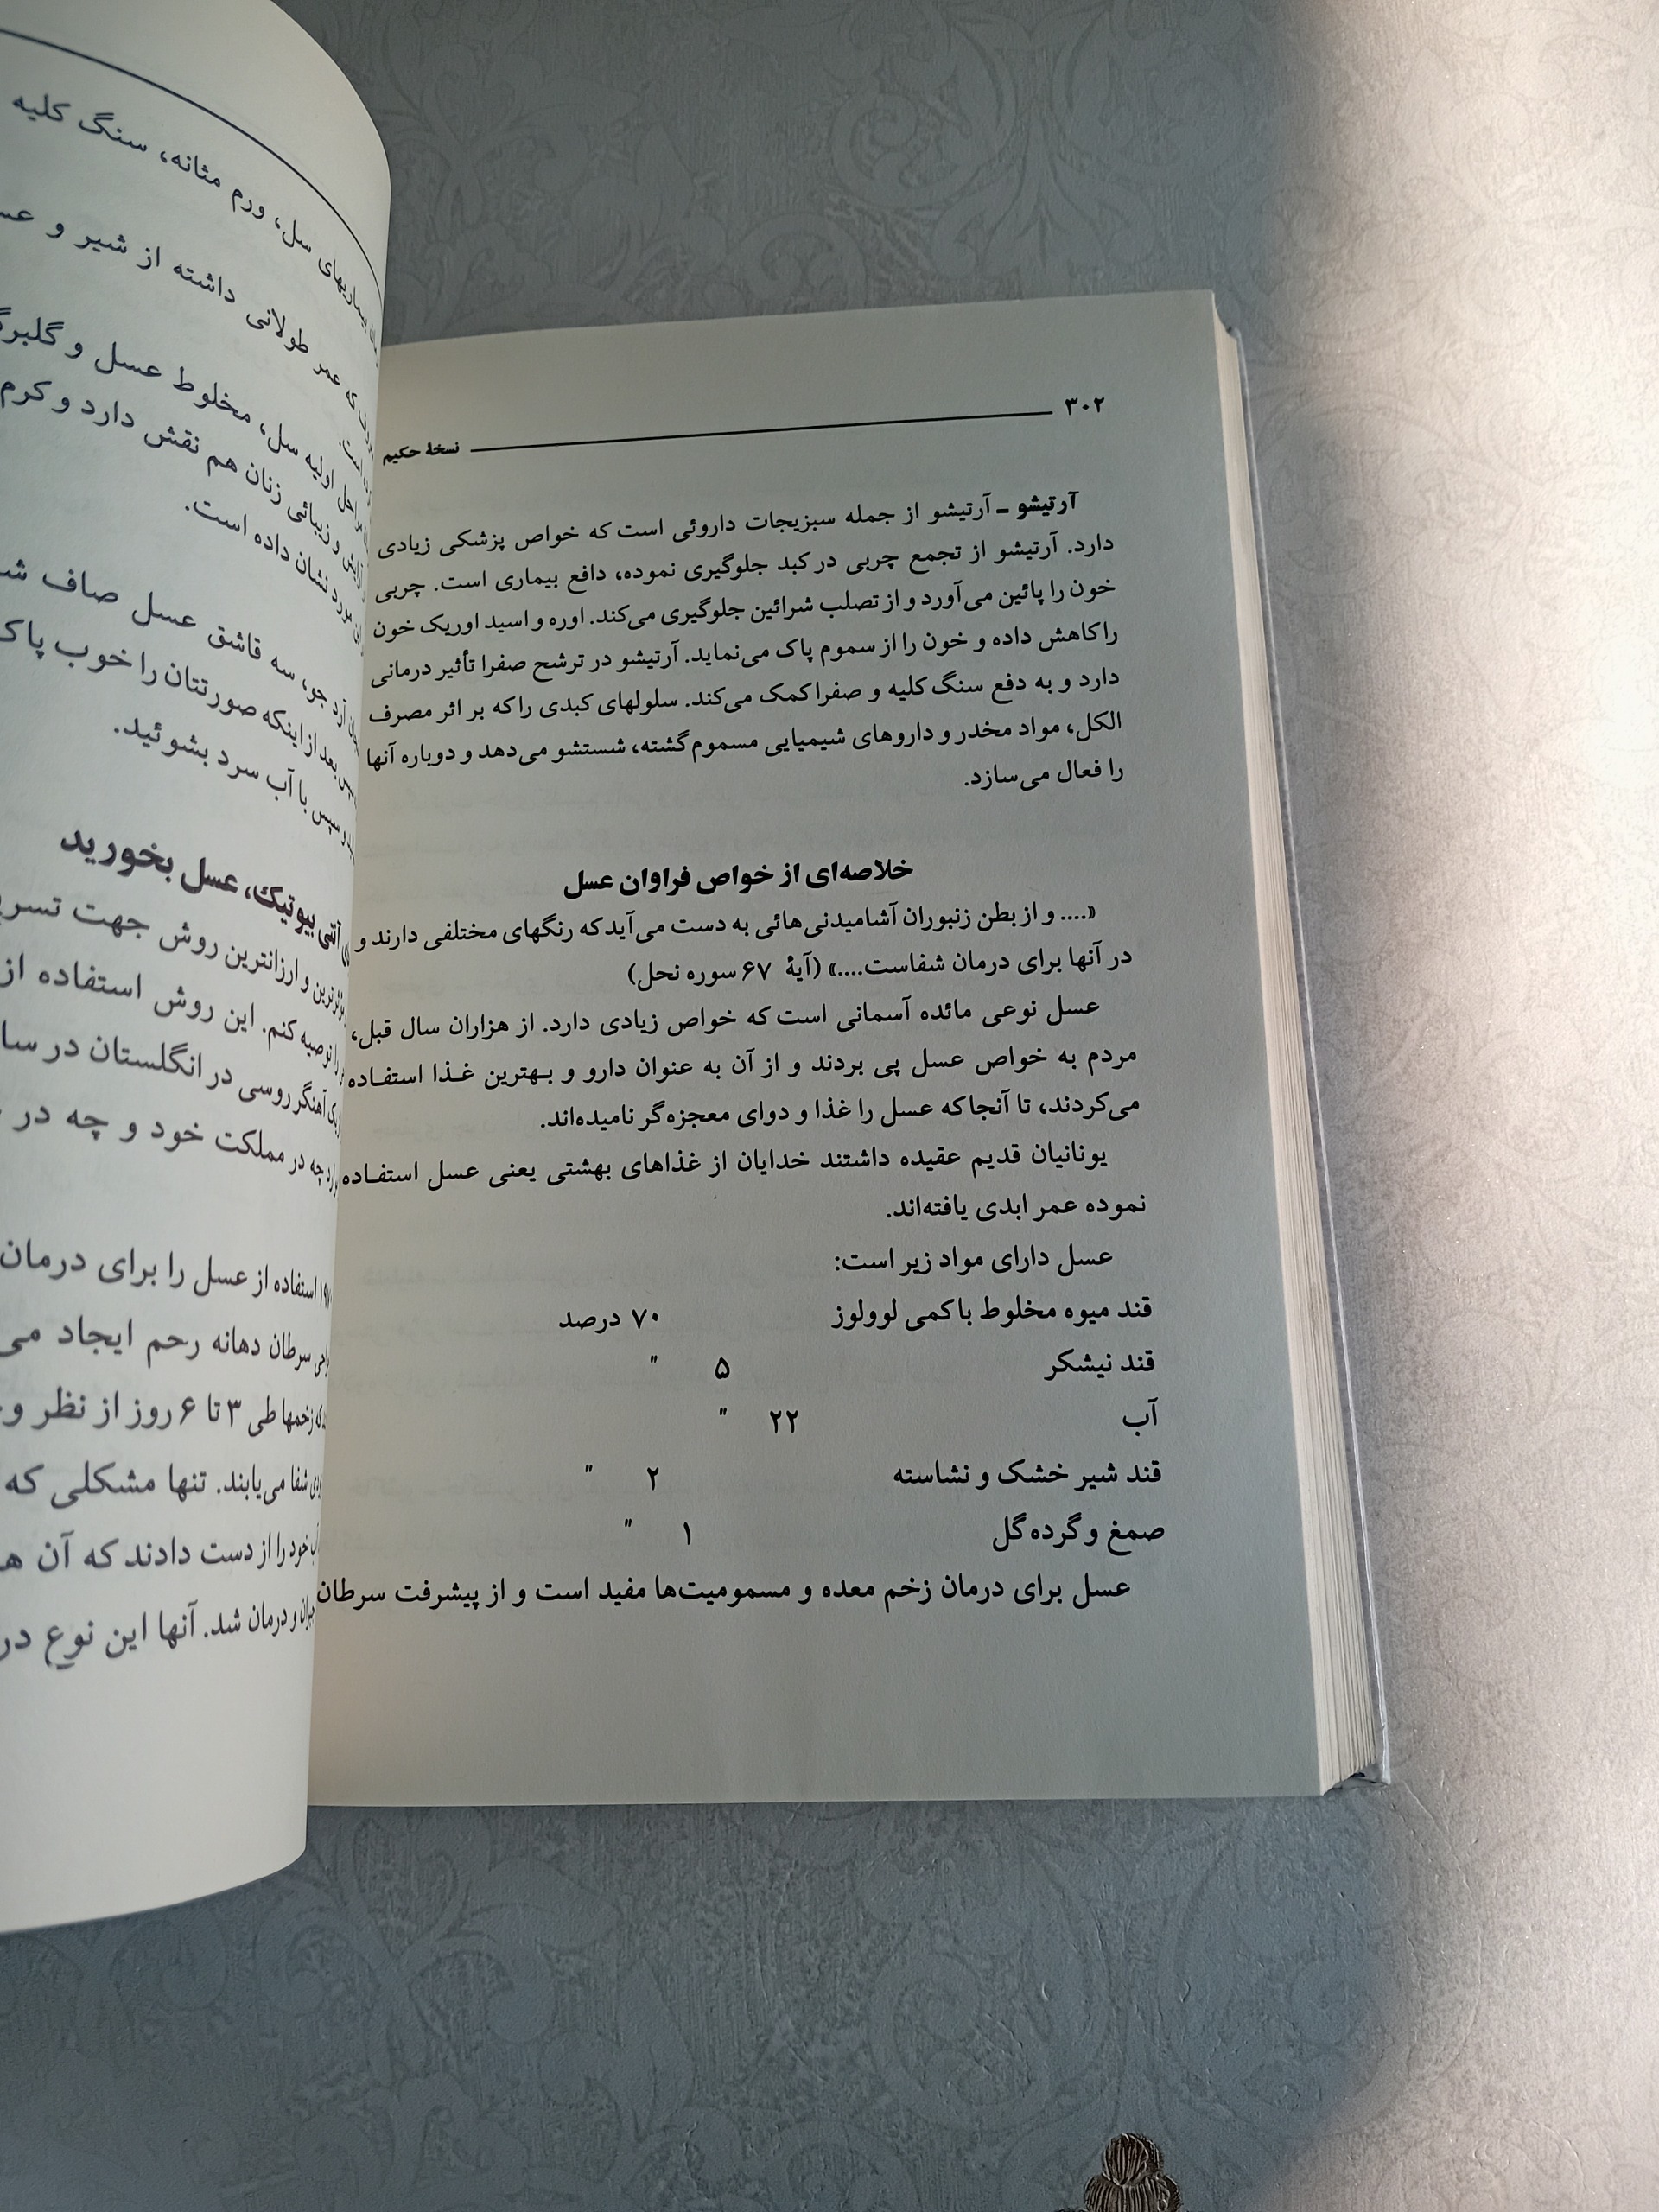 ۳۰۲
نسخهٔ حکیم
آرتیشو ـ آرتیشو از جمله سبزیجات داروئی است که خواص پزشکی زیادی
دارد. آرتیشو از تجمع چربی در کبد جلوگیری نموده، دافع بیماری است. چربی
خون را پائین می‌آورد و از تصلب شرائین جلوگیری می‌کند. اوره و اسید اوریک خون
را کاهش داده و خون را از سموم پاک می‌نماید. آرتیشو در ترشح صفرا تأثیر درمانی
دارد و به دفع سنگ کلیه و صفرا کمک می‌کند. سلولهای کبدی را که بر اثر مصرف
الکل، مواد مخدر و داروهای شیمیایی مسموم گشته، شستشو می‌دهد و دوباره آنها
را فعال می‌سازد.
خلاصه‌ای از خواص فراوان عسل
«.... و از بطن زنبوران آشامیدنی‌هائی به دست می‌آید که رنگهای مختلفی دارند و
در آنها برای درمان شفاست....» (آیهٔ ۶۷ سوره نحل)
عسل نوعی مائده آسمانی است که خواص زیادی دارد. از هزاران سال قبل،
مردم به خواص عسل پی بردند و از آن به عنوان دارو و بهترین غذا استفاده
می‌کردند، تا آنجا که عسل را غذا و دوای معجزه‌گر نامیده‌اند.
یونانیان قدیم عقیده داشتند خدایان از غذاهای بهشتی یعنی عسل استفاده
نموده عمر ابدی یافته‌اند.
عسل دارای مواد زیر است:
قند میوه مخلوط با کمی لوولوز ۷۰ درصد
قند نیشکر ۵ "
آب ۲۲ "
قند شیر خشک و نشاسته ۲ "
صمغ و گرده گل ۱ "
عسل برای درمان زخم معده و مسمومیت‌ها مفید است و از پیشرفت سرطان
بیماریهای سل، ورم مثانه، سنگ کلیه
که عمر طولانی داشته از شیر و
اولیه سل، مخلوط عسل و
و زیبائی زنان هم نقش دارد و کرم
مورد نشان داده است.
آرد جو، سه قاشق عسل صاف
بعد از اینکه صورتتان را خوب
و سپس با آب سرد بشوئید.
آنتی بیوتیک، عسل بخورید
و ارزانترین روش جهت
توصیه کنم. این روش استفاده از
آهنگر روسی در انگلستان در
چه در مملکت خود و چه در
استفاده از عسل را برای درمان
سرطان دهانه رحم ایجاد
که زخمها طی ۳ تا ۶ روز از نظر
شفا می‌یابند. تنها مشکلی که
خود را از دست دادند که آن
و درمان شد. آنها این نوع